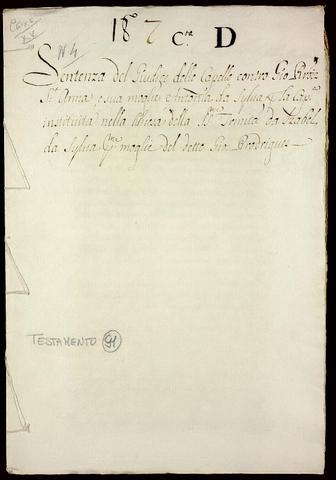 Caixa
XX
18º 7 Cra D
N 4
Sentenza del Giudice delle Capelle contro Gio
St Anna, e sua moglie Antonia da Sylva la Cap
instituita nella Chiesa della SS Trinita da Izabel
da Sylva moglie del detto Gio Rodrigues
TESTAMENTO 91